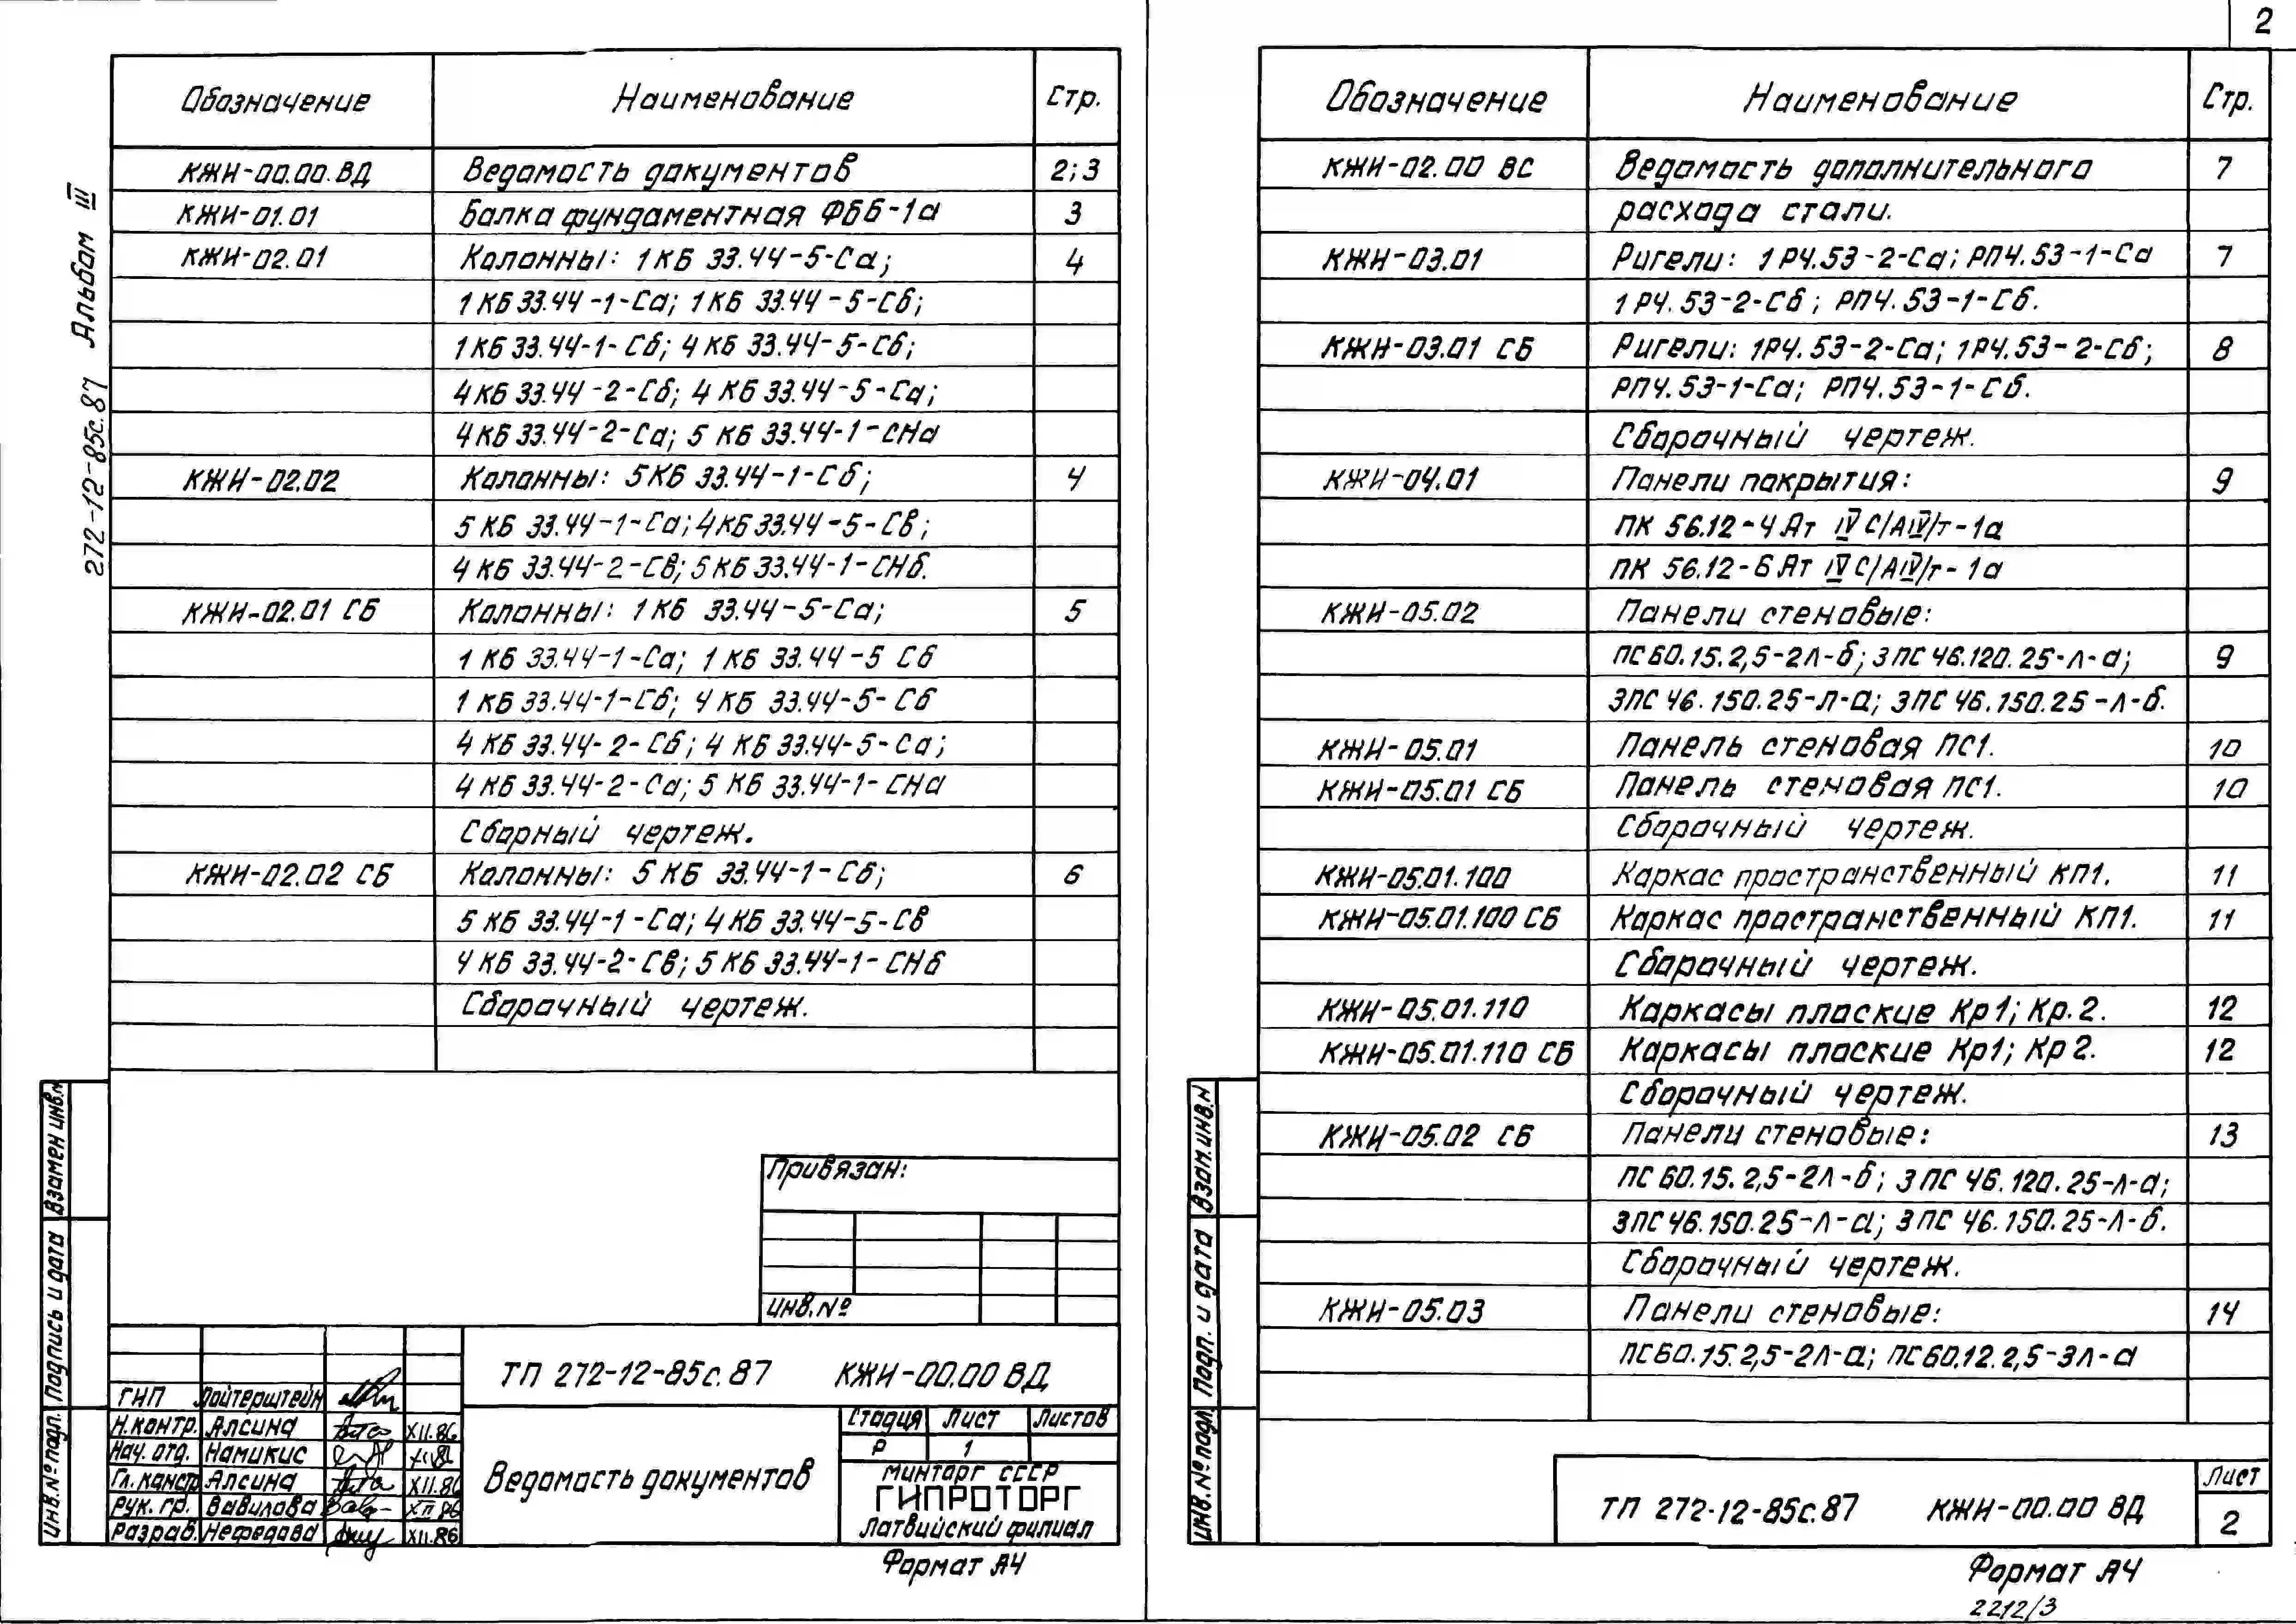 2
272-12-85с.87 Альбом III
Обозначение Наименование Стр.
КЖИ-00.00.ВД Ведомость документов 2;3
КЖИ-01.01 Балка фундаментная ФББ-1а 3
КЖИ-02.01 Колонны: 1КБ 33.44-5-Са; 4
1КБ 33.44-1-Са; 1КБ 33.44-5-Сб;
1КБ 33.44-1-Сб; 4КБ 33.44-5-Сб;
4КБ 33.44-2-Сб; 4КБ 33.44-5-Са;
4КБ 33.44-2-Са; 5 КБ 33.44-1-СНа
КЖИ-02.02 Колонны: 5КБ 33.44-1-Сб; 4
5 КБ 33.44-1-Са; 4КБ 33.44-5-Св;
4 КБ 33.44-2-Св; 5КБ 33.44-1-СНб.
КЖИ-02.01 СБ Колонны: 1КБ 33.44-5-Са; 5
1 КБ 33.44-1-Са; 1 КБ 33.44-5 Сб
1 КБ 33.44-1-Сб; 4 КБ 33.44-5-Сб
4 КБ 33.44-2-Сб; 4 КБ 33.44-5-Са;
4 КБ 33.44-2-Са; 5 КБ 33.44-1-СНа
Сборный чертеж.
КЖИ-02.02 СБ Колонны: 5 КБ 33.44-1-Сб; 6
5 КБ 33.44-1-Са; 4КБ 33.44-5-Св
4 КБ 33.44-2-Св; 5 КБ 33.44-1-СНб
Сборочный чертеж.
Привязан:
Инв.№
ТП 272-12-85с.87 КЖИ-00.00 ВД
ГИП Лойтерштейн
Н.контр. Алсина XII.86
Нач. отд. Намикис XII.86
Гл. констр. Алсина XII.86
Рук. гр. Вавилова XII.86
Разраб. Нефедова XII.86
Ведомость документов
Стадия Лист Листов
Р 1
Минторг СССР
ГИПРОТОРГ
Латвийский филиал
Формат А4
Взамен инв.№
Подпись и дата
Инв.№ подл.
Обозначение Наименование Стр.
КЖИ-02.00 ВС Ведомость дополнительного 7
расхода стали.
КЖИ-03.01 Ригели: 1РЧ.53-2-Са; РПЧ.53-1-Са 7
1РЧ.53-2-Сб; РПЧ.53-1-Сб.
КЖИ-03.01 СБ Ригели: 1РЧ.53-2-Са; 1РЧ.53-2-Сб; 8
РПЧ.53-1-Са; РПЧ.53-1-Сб.
Сборочный чертеж.
КЖИ-04.01 Панели покрытия: 9
ПК 56.12-4Ат IV С/АIV/т-1а
ПК 56.12-6Ат IV С/АIV/т-1а
КЖИ-05.02 Панели стеновые:
ПС60.15.2,5-2Л-б; 3ПС 46.120.25-Л-а; 9
3ПС 46.150.25-Л-а; 3ПС 46.150.25-Л-б.
КЖИ-05.01 Панель стеновая ПС1. 10
КЖИ-05.01 СБ Панель стеновая ПС1. 10
Сборочный чертеж.
КЖИ-05.01.100 Каркас пространственный КП1. 11
КЖИ-05.01.100 СБ Каркас пространственный КП1. 11
Сборочный чертеж.
КЖИ-05.01.110 Каркасы плоские Кр1; Кр.2. 12
КЖИ-05.01.110 СБ Каркасы плоские Кр1; Кр2. 12
Сборочный чертеж.
КЖИ-05.02 СБ Панели стеновые: 13
ПС 60.15.2,5-2Л-б; 3ПС 46.120.25-Л-а;
3ПС 46.150.25-Л-а; 3ПС 46.150.25-Л-б.
Сборочный чертеж.
КЖИ-05.03 Панели стеновые: 14
ПС60.15.2,5-2Л-а; ПС60.12.2,5-3Л-а
Взам.инв.№
Подп. и дата
Инв.№ подл.
ТП 272-12-85с.87 КЖИ-00.00 ВД
Лист
2
Формат А4
2212/3